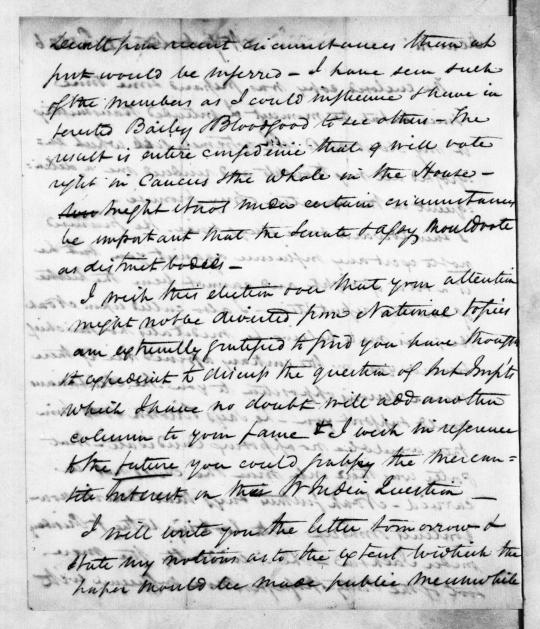 result from recent circumstances than at
first would be inferred – I have seen such
of the members as I could influence & have in
terested Bailey & Bloodgood to see others – The
result is entire confidence that 9 will vote
right in Caucus & the whole in the House –
might it not under certain circumstances
be important that the Senate & assy should vote
as distinct bodies –
I wish this election over that your attention
might not be diverted from National topics
am extremely gratified to find you have thought
it expedient to discuss the question of Int Impts
which I have no doubt will add another
column to your fame & I wish in reference
to the future you could gratify the mercan=
tile Interest on the W India Question –
I will write you the letter tomorrow &
state my notions as to the extent to which the
paper should be made public meanwhile